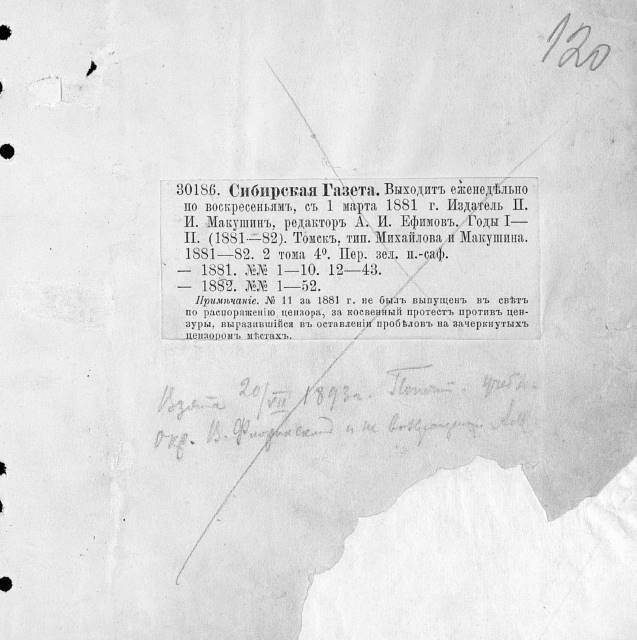 120
30186. Сибирская Газета. Выходитъ еженедѣльно
по воскресеньямъ, съ 1 марта 1881 г. Издатель П.
И. Макушинъ, редакторъ А. И. Ефимовъ. Годы I—
II. (1881—82). Томскъ, тип. Михайлова и Макушина.
1881—82. 2 тома 4⁰. Пер. зел. п.-саф.
— 1881. №№ 1—10. 12—43.
— 1882. №№ 1—52.
Примѣчаніе. № 11 за 1881 г. не былъ выпущенъ въ свѣтъ
по распоряженію цензора, за косвенный протестъ противъ цен-
зуры, выразившійся въ оставленіи пробѣловъ на зачеркнутыхъ
цензоромъ мѣстахъ.
Взята 20/VII 1893 г. Попечит. учебн.
окр. В. Флоринскій и не возвращена.